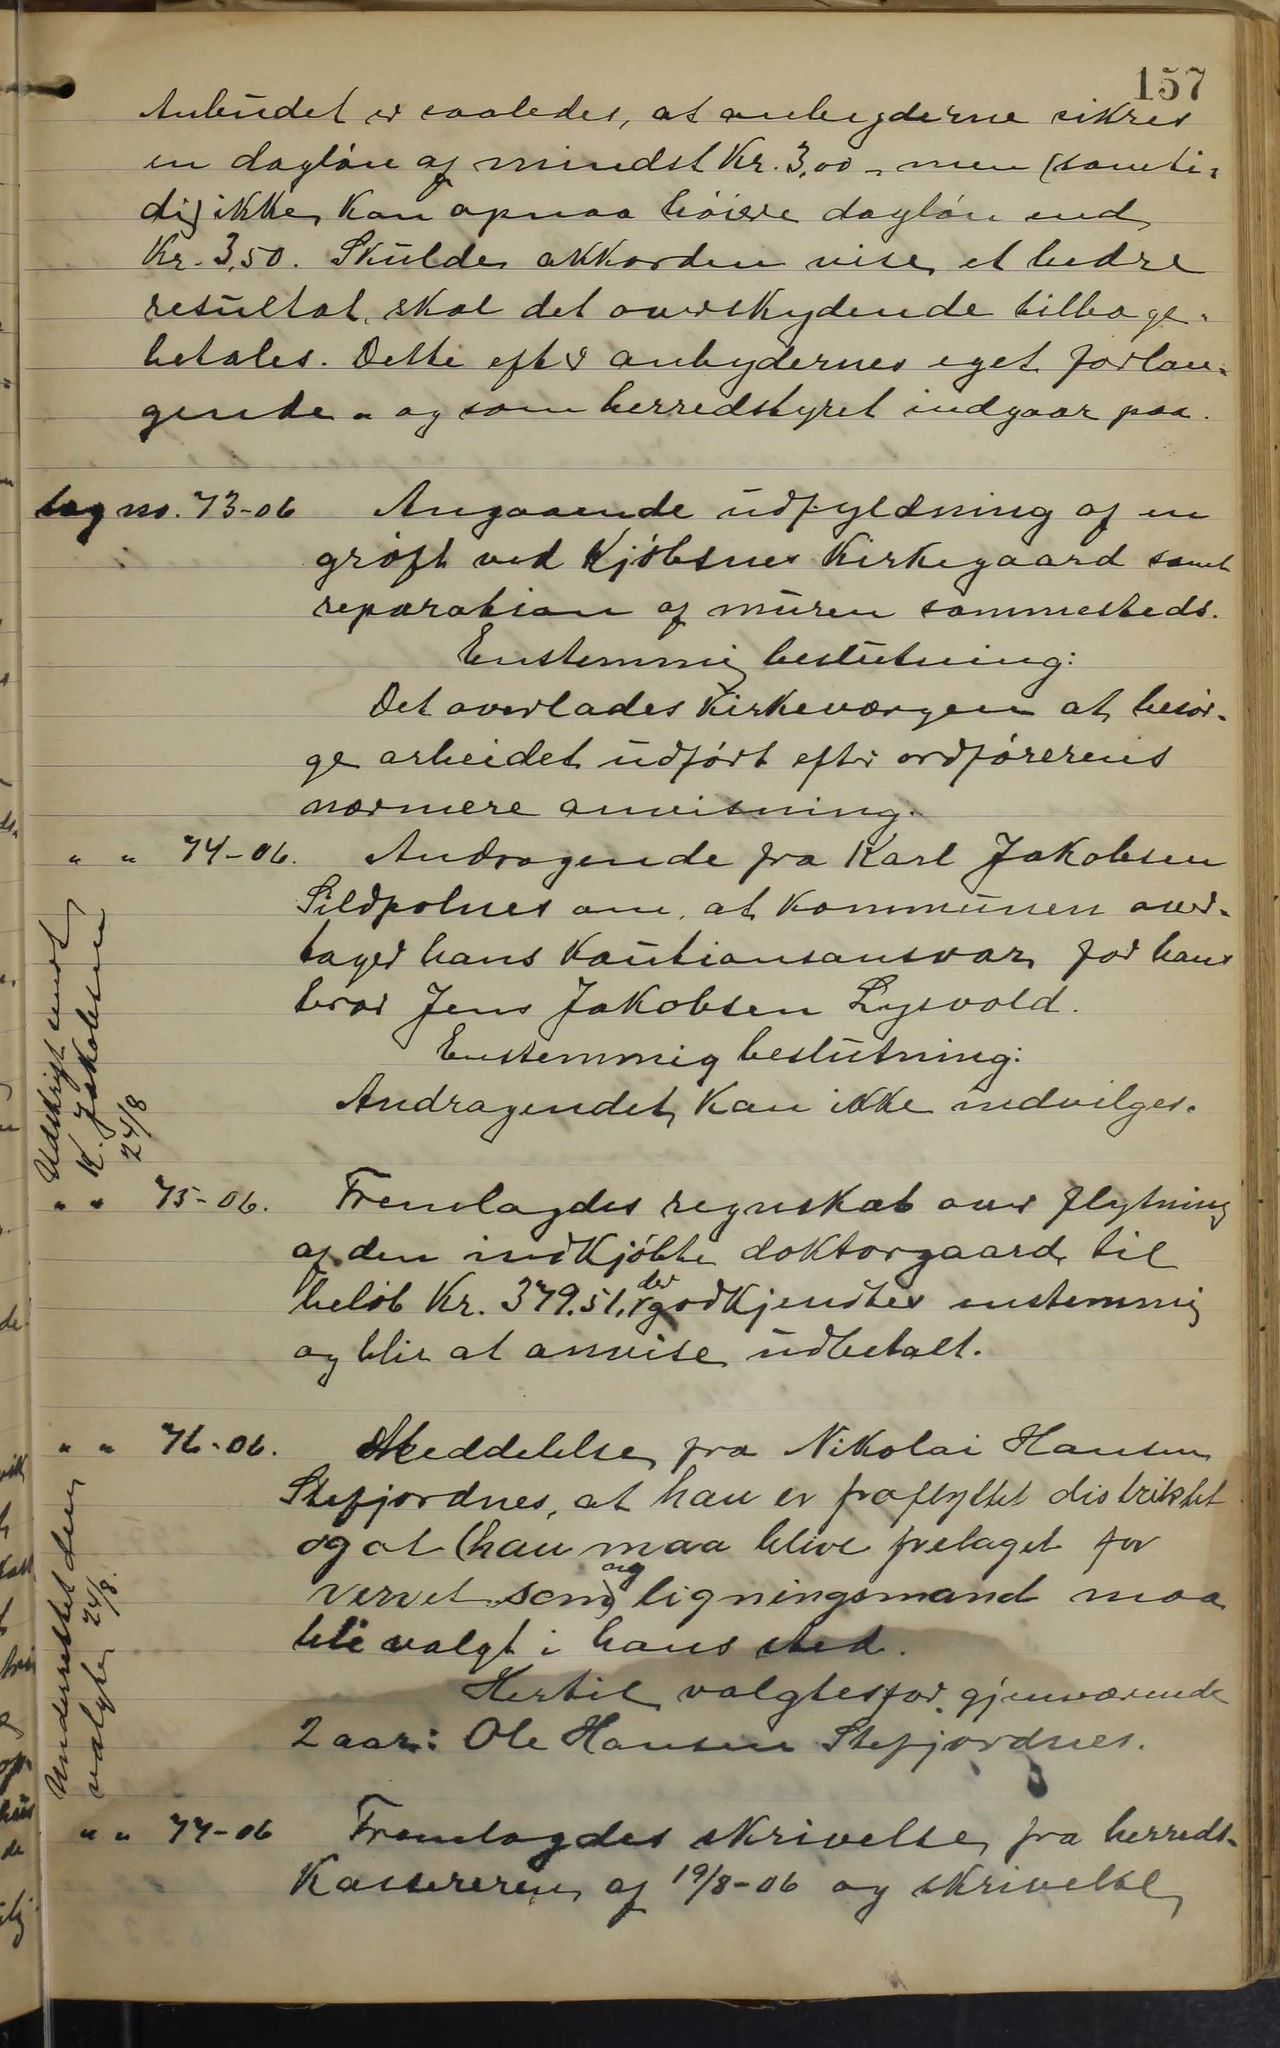 157
Anbudet er saaledes, at anbyderne sikres
en dagløn af mindst Kr. 3,00 - men (samti-
dig) ikke kan opnaa høiere dagløn end
Kr. 3,50. Skulde akkorden vise et bedre
resultat, skal det overskydende tilbage-
betales. Dette efter anbydernes eget forlan-
gende - og som herredstyret indgaar paa.
sag no. 73-06 Angaaende udfyldning af en
grøft ved Kjøbsnes Kirkegaard samt
reparation af muren sammesteds.
Enstemmig beslutning:
Det overlades Kirkeværgen at besør-
ge arbeidet udført efter ordførerens
nærmere anvisning.
" " 74-06. Andragende fra Karl Jakobsen
Sildpolnes om, at Kommunen over-
tager hans Kautionsansvar for hans
bror Jens Jakobsen Lysvold.
Enstemmig beslutning:
Andragendet kan ikke indvilges.
Udskrift sendt
K. Jakobsen
24/8
" " 75-06. Fremlagdes regnskab over flytning
af den indkjøbte doktorgaard til
beløb Kr. 379.51, der godkjendtes enstemmig
og blir at anvise udbetalt.
" " 76-06. Meddelelse fra Nikolai Hansen
Stefjordnes, at han er fraflyttet distriktet
og at (han maa blive fretaget for
vervet som) ny ligningsmand maa
bli valgt i hans sted.
Hertil valgtes for gjenværende
2 aar: Ole Hansen Stefjordnes.
Underrettet den
valgte 24/8.
" " 77-06 Fremlagdes skrivelse fra herreds-
Kassereren af 19/8-06 og skrivelse